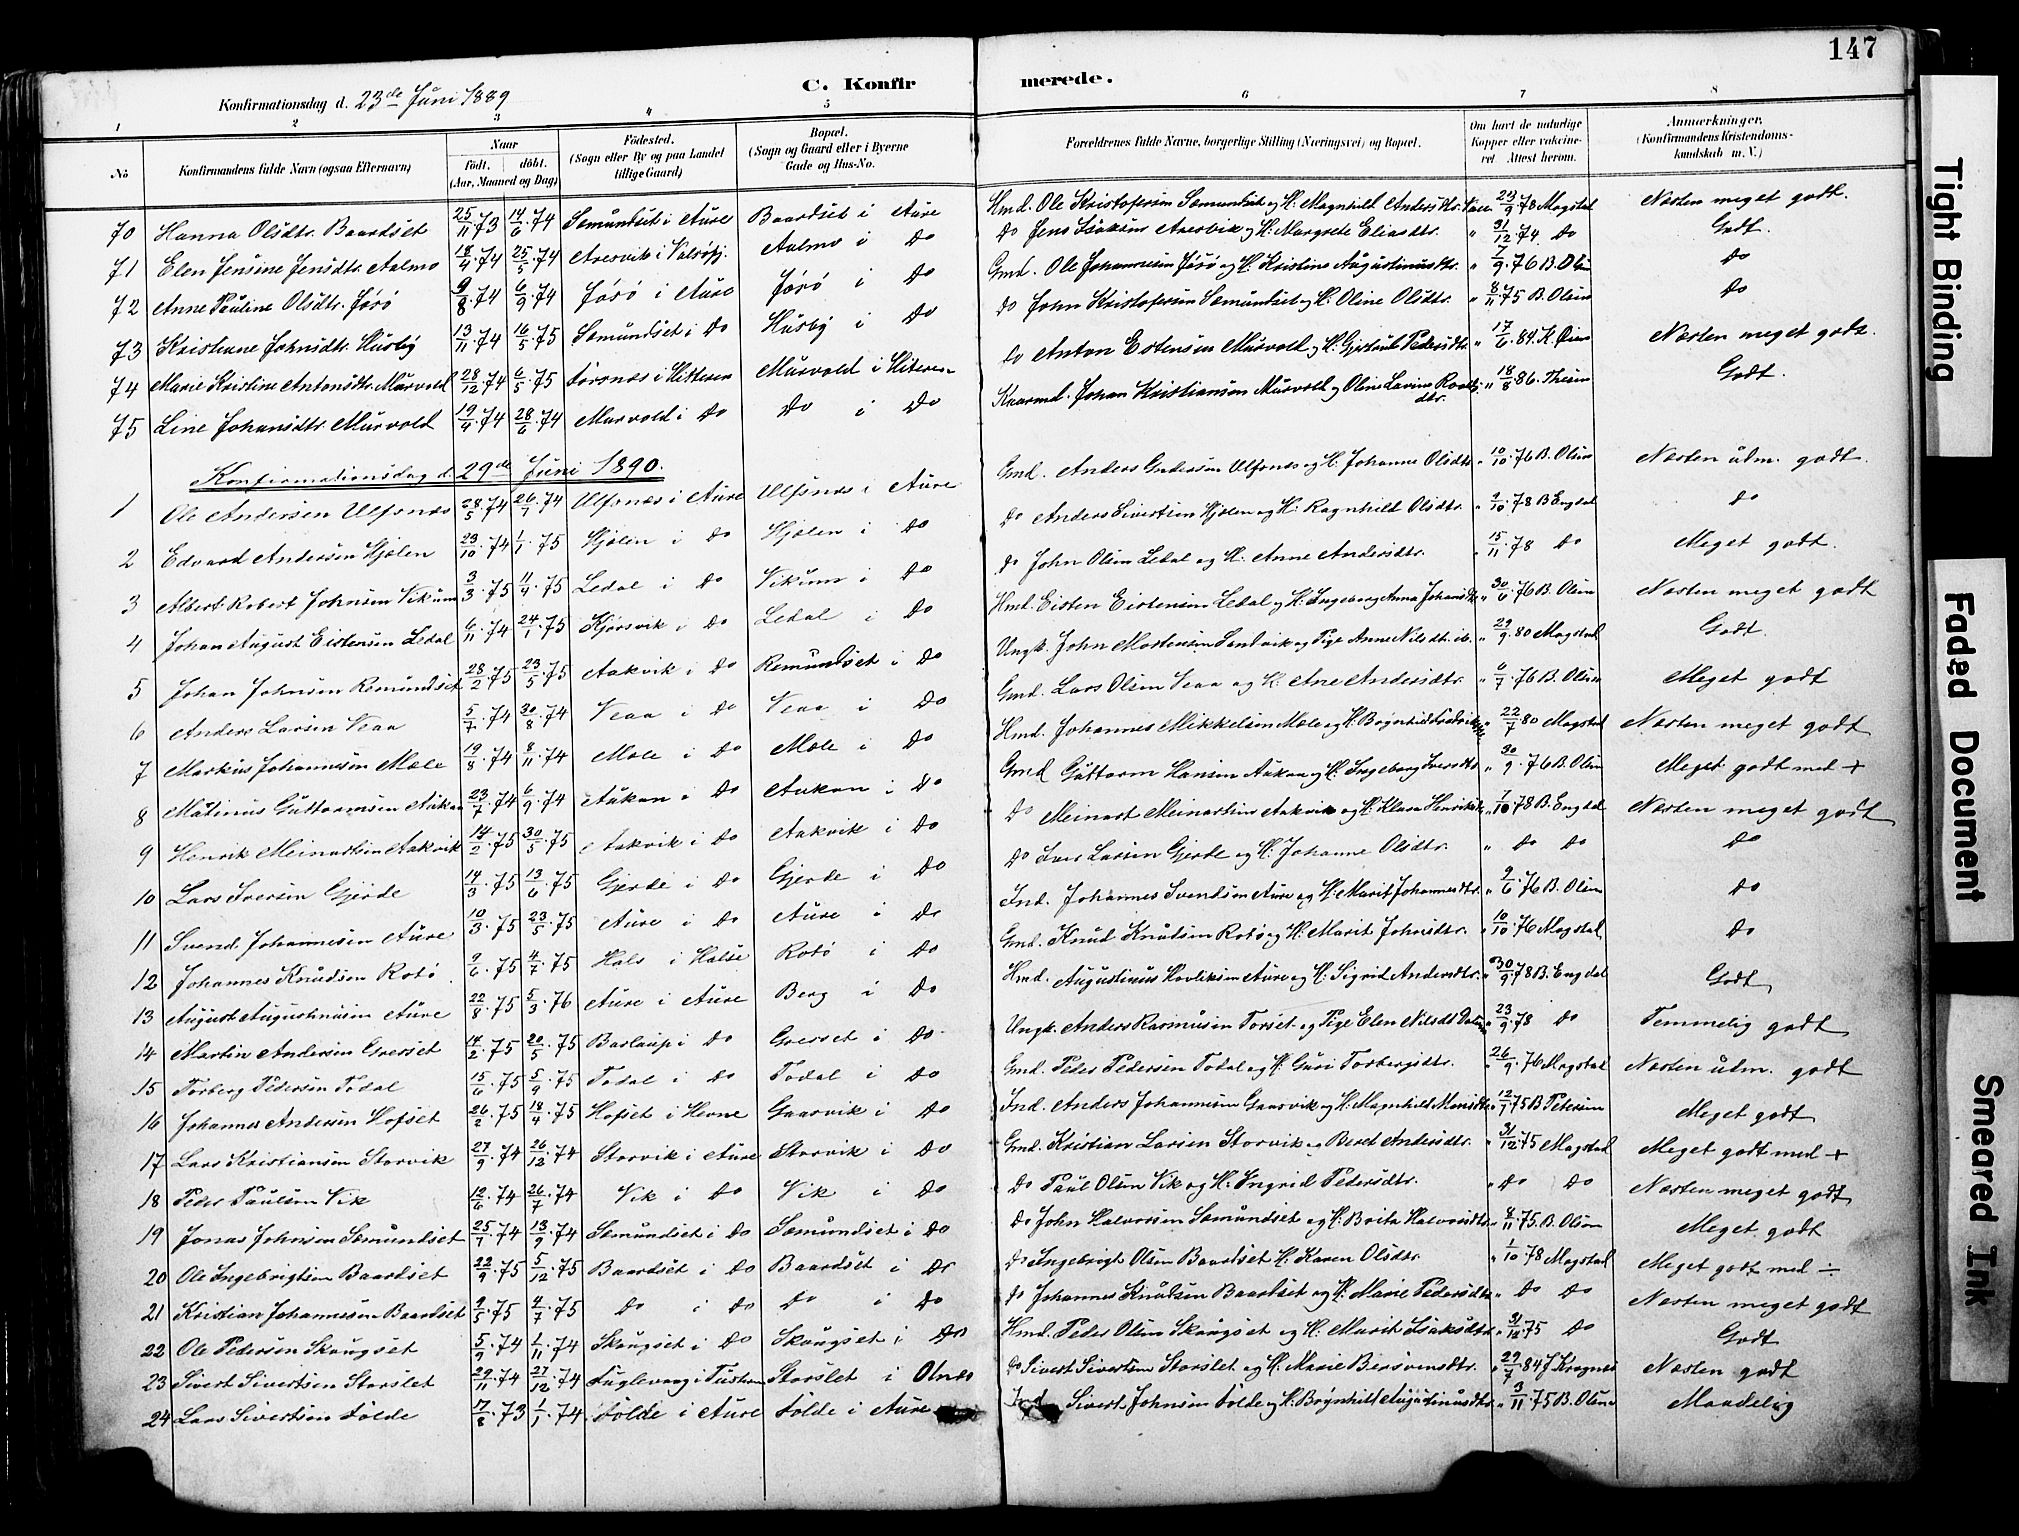 147
C. Konfirmerede.
Konfirmationsdag d. 23de Juni 1889
1 2 3 4 5 6 7 8
No
Konfirmandens fulde Navn (ogsaa Efternavn)
Naar
födt. döbt.
(Aar, Maaned og Dag)
Födested.
(Sogn eller By og paa Landet tillige Gaard)
Bopæl.
(Sogn og Gaard eller i Byerne Gade og Hus-No.
Forældrenes fulde Navne, borgerlige Stilling (Næringsvei) og Bopæl.
Om havt de naturlige Kopper eller vakcineret. Attest herom.
Anmærkninger.
(Konfirmandens Kristendomskundskab m. V.)
70 Hanna Olsdtr. Baardset 25/11 73 14/6 74 Semundset i Aure Baardset i Aure Hmd. Ole Kristofersen Semundset og H. Magnhild Andersdtr. Vac. 29/9 78 Magstad Næsten meget godt.
71 Elen Jensine Jensdtr. Aalmo 18/4 74 25/5 74 Aresvik i Valsøfj. Aalmo i Do Do Jens Isaksen Aresvik og H. Margrete Eliasdtr. " 31/12 74 Do Godt.
72 Anne Pauline Olsdtr. Jørø 9/8 74 6/9 74 Jørø i Aure Jørø i Do Gmd. Ole Johannesen Jørø og H. Kristine Augustinusdtr. " 7/9 76 B. Olsen Do
73 Kristiane Johnsdtr. Husby 13/11 74 16/5 75 Semundset i Do Husby i Do Do John Kristofersen Semundset og H. Oline Olsdtr. " 8/11 75 B. Olsen Do
74 Marie Kristine Antonsdtr. Murvold 28/12 74 6/5 75 i Hitteren Murvold i Hiteren Do Anton Estensen Murvold og H. Gjertrud Pedersdtr. " 17/6 84 K. Næsten meget godt.
75 Line Johansdtr. Murvold 19/4 74 28/6 74 Murvold i Do Do i Do Johan Kristiansen Murvold og Oline Lavine " 18/8 86 Godt.
Konfirmationsdag d. 29de Juni 1890.
1 Ole Andersen Ulfsnes 28/5 74 26/7 74 Ulfsnes i Aure Ulfsnes i Aure Gmd. Anders Andersen Ulfsnes og H. Johanne Olsdtr. " 10/10 76 B. Olsen Næsten udm. godt.
2 Edvard Andersen Hjølen 23/10 74 1/1 75 Hjølen i Do Hjølen i Do Do Anders Sivertsen Hjølen og H. Ragnhild Olsdtr. " 9/10 78 B Engdal Do
3 Albert Robert Johnsen Vikum 3/3 75 11/4 75 Ledal i Do Vikum i Do Do John Olsen Ledal og H. Anne Andersdtr. " 15/11 78 Do Meget godt.
4 Johan August Eistensen Ledal 6/11 74 24/1 75 Kjørsvik i Do Ledal i Do Hmd. Eisten Eistensen Ledal og H. Ingeborg Anna Johansdtr. " 30/6 76 B. Olsen Næsten meget godt
5 Johan Johnsen Remundset 28/2 75 23/5 75 Aakvik i Do Remundset i Do Ungk. John Mortensen Sandvik og Pige Anne Nilsdtr. ib. " 29/9 80 Magstad Godt.
6 Anders Larsen Veaa 5/7 74 30/8 74 Veaa i Do Veaa i Do Gmd. Lars Olsen Veaa og H. Ane Andersdtr. " 6/7 76 B. Olsen Meget godt
7 Markus Johannesen Mæle 19/8 74 8/11 74 Mæle i Do Mæle i Do Hmd. Johannes Mikkelsen Mæle og H. " 22/7 80 Magstad Næsten meget godt
8 Matinus Guttormsen Aukan 23/7 74 6/9 74 Aukan i Do Aukan i Do Gmd Guttorm Hansen Aukan og H. Ingeborg Iversdtr " 30/9 76 B. Olsen Meget godt med +
9 Henrik Meinartsen Aakvik 14/2 75 30/5 75 Aakvik i Do Aakvik i Do Do Meinart Meinartsen Aakvik og H. Klara Henriksdtr " 7/10 78 B. Engdal Næsten meget godt
10 Lars Iversen Gjerde 14/3 75 13/6 75 Gjerde i Do Gjerde i Do Do Iver Larsen Gjerde og H. Johanne Olsdtr. " Do Do Do
11 Svend Johannesen Aure 10/3 75 23/5 75 Aure i Do Aure i Do Ind. Johannes Svendsen Aure og H. Marit Johannesdtr. " 9/6 76 B. Olsen Do
12 Johannes Knudsen Rotø 9/6 75 4/7 75 Hals i Halse Rotø i Do Gmd. Knud Knudsen Rotø og H. Marit Johnsdtr. " 10/10 76 Magstad Do
13 August Augustinusen Aure 22/8 75 5/3 76 Aure i Aure Berg i Do Hmd. Augustinus Havliksen Aure og H. Sigrid Andersdtr. " 30/9 78 B. Engdal Godt
14 Martin Andersen Gresset 14/2 75 20/5 75 Baslaup i Do Gresset i Do Ungk. Anders Rasmusen Torset og Pige Elen Nilsdt " 23/9 78 Do Temmelig godt
15 Torberg Pedersen Todal 15/6 75 5/9 75 Todal i Do Todal i Do Gmd. Peder Pedersen Todal og H. Guri Torbergsdtr. " 26/9 76 Magstad Næsten udm. godt
16 Johannes Andersen Hofset 26/2 75 18/4 75 Hofset i Hevne Gaasvik i Do Ind. Anders Johannesen Gaasvik og H. Magnhild Monsdtr " 12/7 75 B Petersen Meget godt
17 Lars Kristiansen Storvik 27/9 74 26/12 74 Storvik i Aure Storvik i Do Gmd. Kristian Larsen Storvik og Beret Andersdtr. " 31/12 75 Magstad Meget godt med +
18 Peder Paulsen Vik 12/6 74 26/7 74 Vik i Do Vik i Do Do Paul Olsen Vik og H. Ingrid Pedersdtr. " Do Do Næsten meget godt
19 Jonas Johnsen Semundset 25/7 74 13/9 74 Semundset i Do Semundset i Do Do John Halvorsen Semundset og H. Brita Halvorsdtr " 8/11 75 B. Olsen Meget godt
20 Ole Ingebrigtsen Baardset 22/9 75 5/12 75 Baardset i Do Baardset i Do Do Ingebrigt Olsen Baardset H. Karen Olsdtr. " 1/10 78 Magstad Meget godt med ÷
21 Kristian Johannesen Baardset 9/5 75 4/7 75 Do i Do Do i Do Do Johannes Knudsen Baardset og H. Marie Pedersdtr " Do Do Næsten meget godt
22 Ole Pedersen Skougset 5/9 74 1/11 74 Skougset i Do Skougset i Do Hmd. Peder Olsen Skougset og H. Marit Isaksdtr " 31/12 75 Do Godt
23 Sivert Sivertsen Storslet 29/11 74 27/12 74 Fuglevaag i Tustern Storslet i Do Sivert Sivertsen Storslet og H. Marie Bersvensdtr. " 29/7 84 J. Kragnes Næsten godt
24 Lars Sivertsen Følde 17/8 73 1/1 74 Følde i Aure Følde i Aure Ind. Sivert Johnsen Følde og H. Brynhild Augustinusdtr " 3/11 75 B. Olsen Maadelig
Tight Binding
Faded Document
Smeared Ink